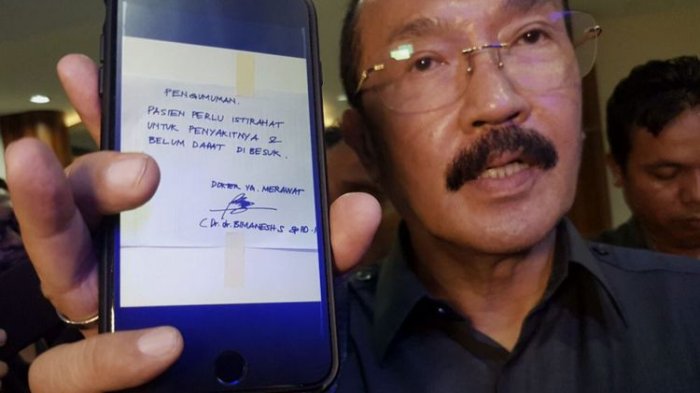 PENGUMUMAN.
PASIEN PERLU ISTIRAHAT
UNTUK PENYAKITNYA &
BELUM DAPAT DIBESUK.
DOKTER YG. MERAWAT
(Dr. dr. BIMANESH S SpPD.